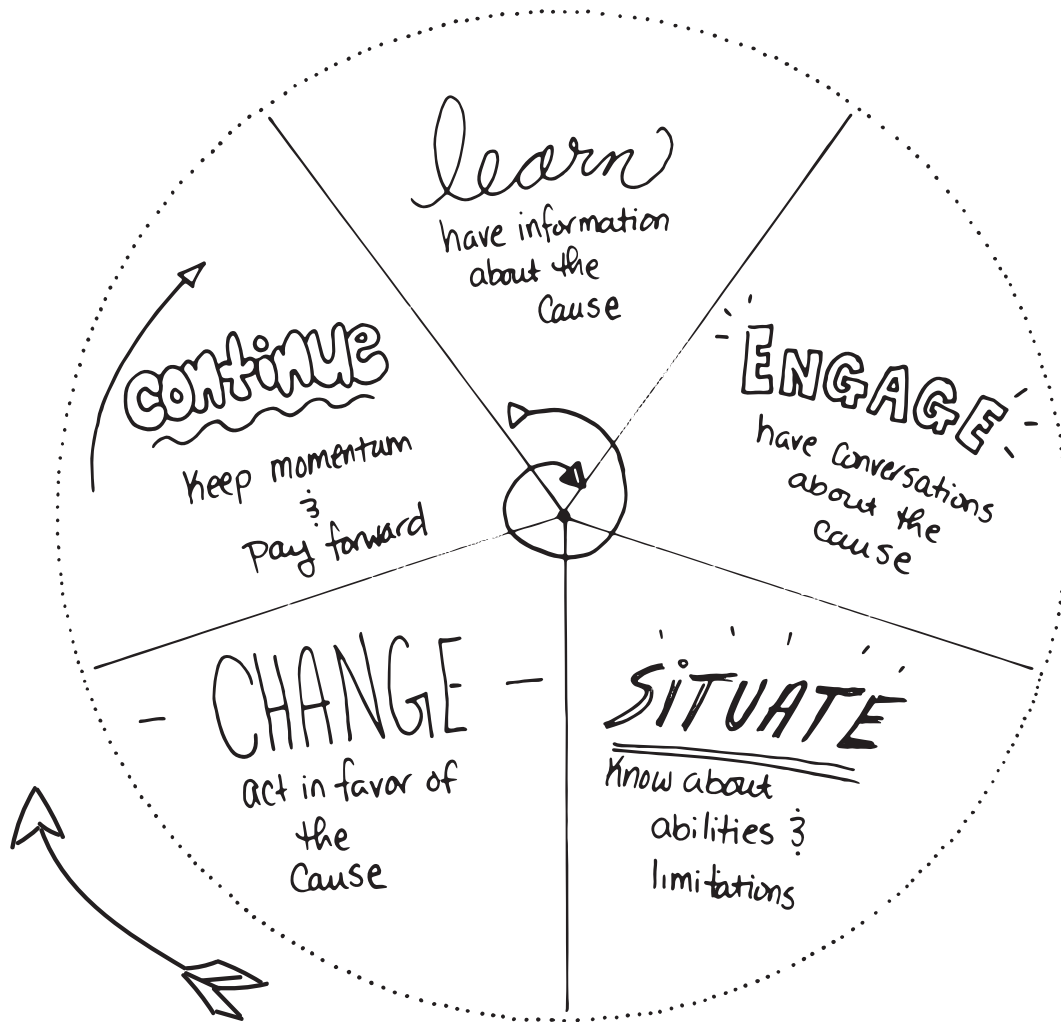 learn
have information
about the
Cause
ENGAGE
have conversations
about the
cause
SiTUATE
Know about
abilities &
limitations
CHANGE
act in favor of
the
Cause
continue
Keep momentum
&
Pay forward